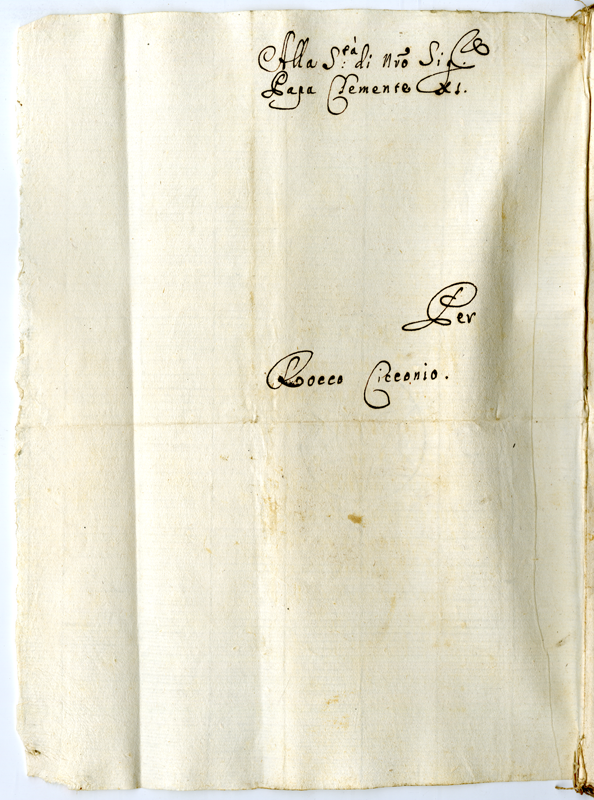 Alla S.tà di Nrō Sig.re
Papa Clemente XI.
Per
Rocco Cicconio.